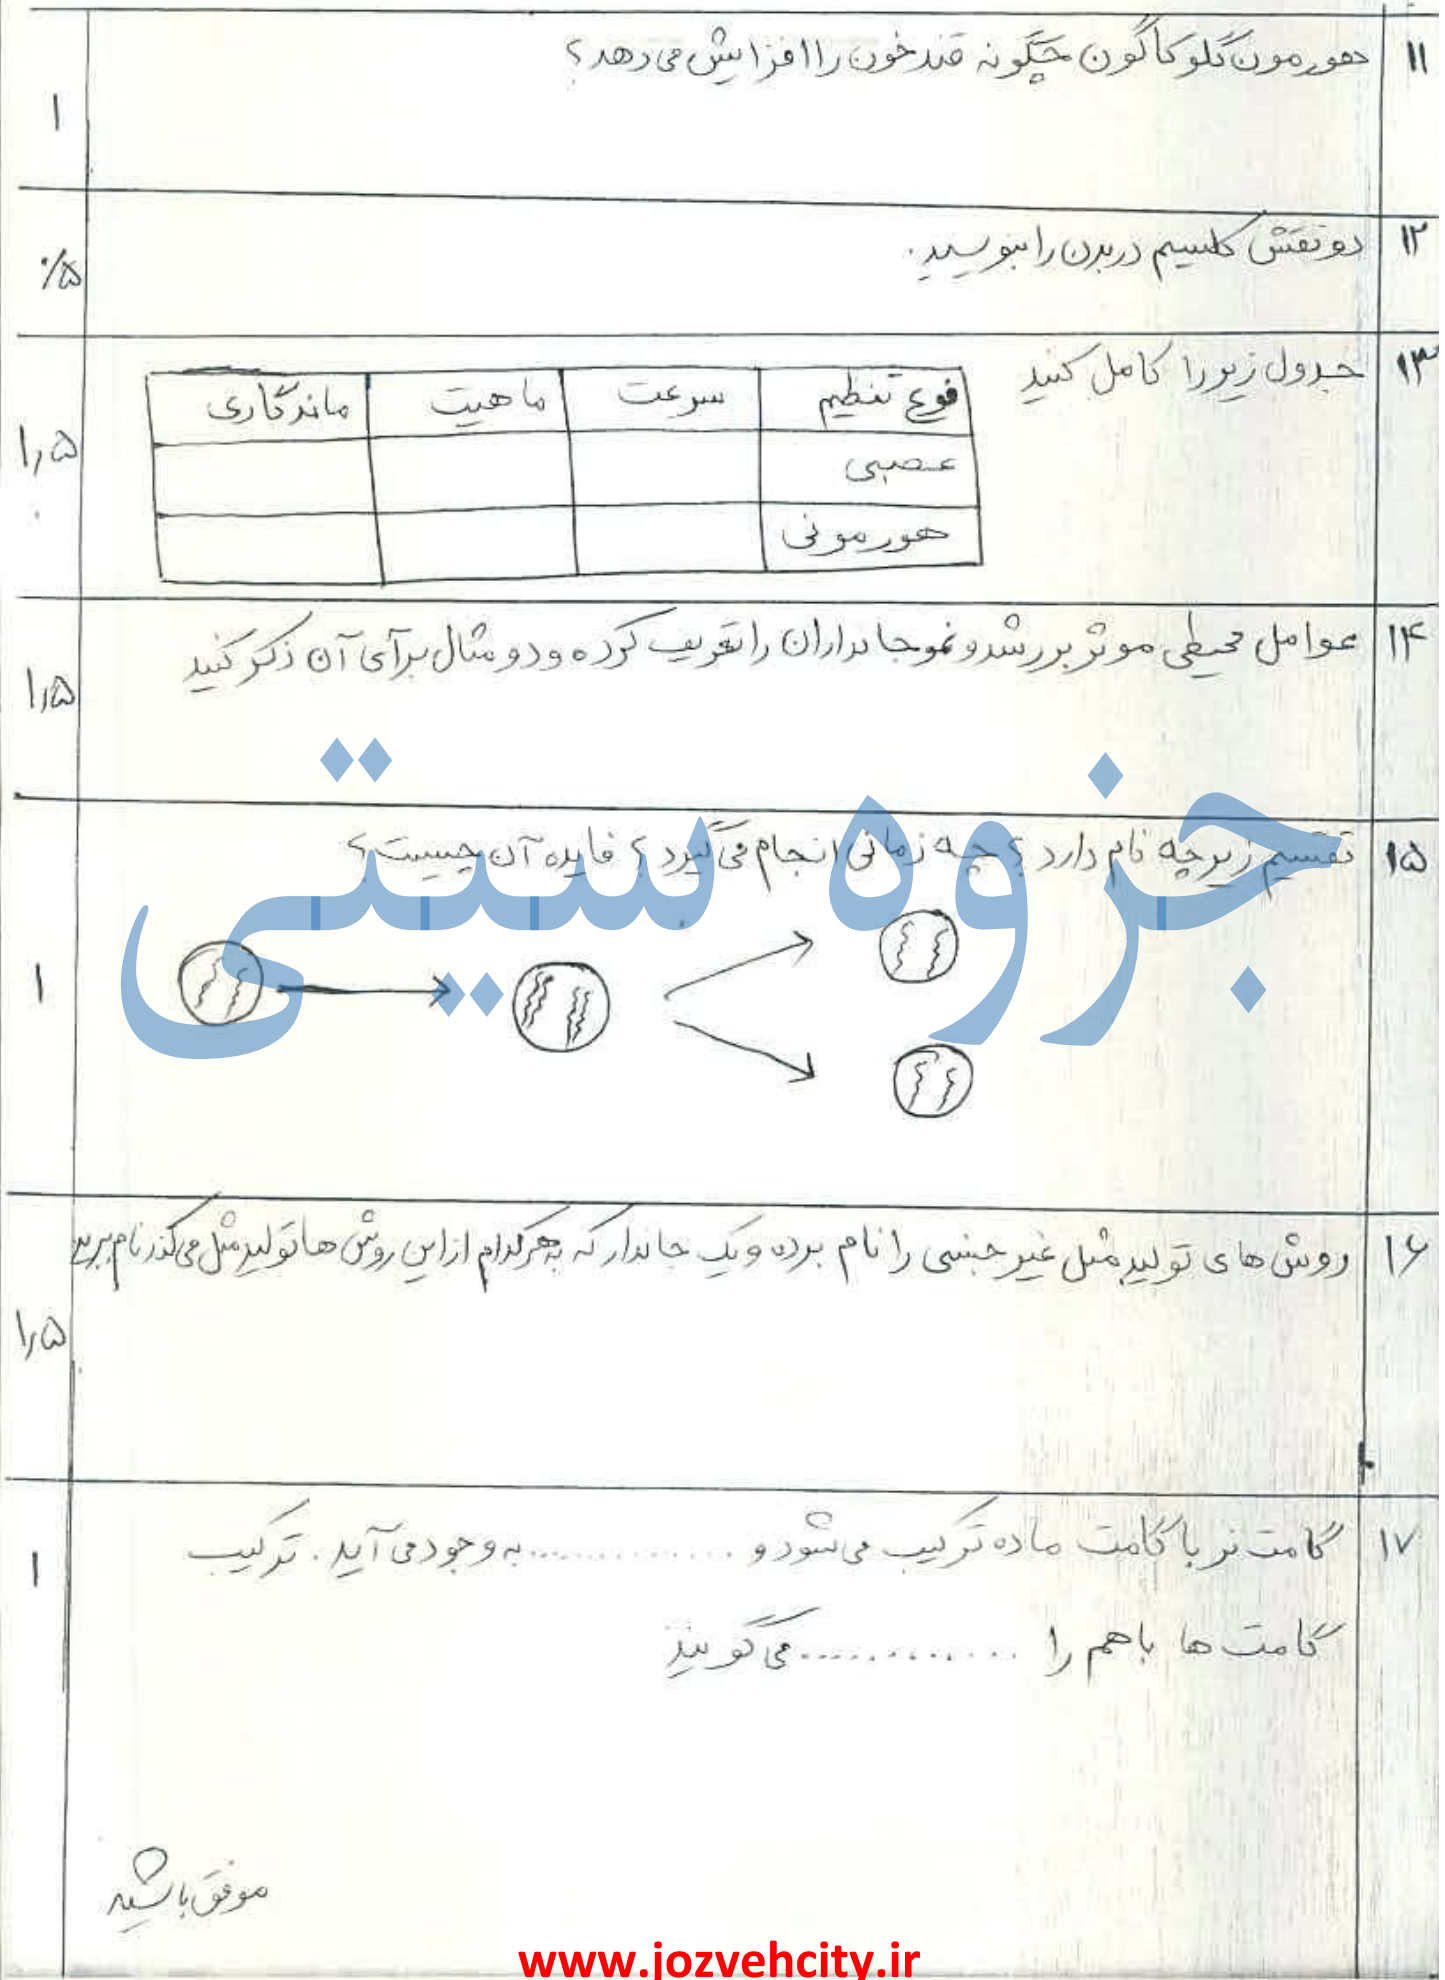 ۱۱ هورمون گلوکاگون چگونه قند خون را افزایش می دهد؟
۱
۱۲ دو نقش کلسیم در بدن را بنویسید.
۰/۵
۱۳ جدول زیر را کامل کنید
نوع تنظیم سرعت ماهیت ماندگاری
عصبی
هورمونی
۱٫۵
۱۴ عوامل محیطی موثر بر رشد و نمو جانداران را تعریف کرده و دو مثال برای آن ذکر کنید
۱٫۵
جزوه سیتی
۱۵ تقسیم زیر چه نام دارد؟ چه زمانی انجام می گیرد؟ فایده آن چیست؟
۱
۱۶ روش های تولید مثل غیر جنسی را نام برده و یک جاندار که به هر کدام از این روش ها تولید مثل می کند نام ببرید
۱٫۵
۱۷ گامت نر با گامت ماده ترکیب می شود و .............. به وجود می آید. ترکیب
۱
گامت ها باهم را .............. می گویند
موفق باشید
www.jozvehcity.ir